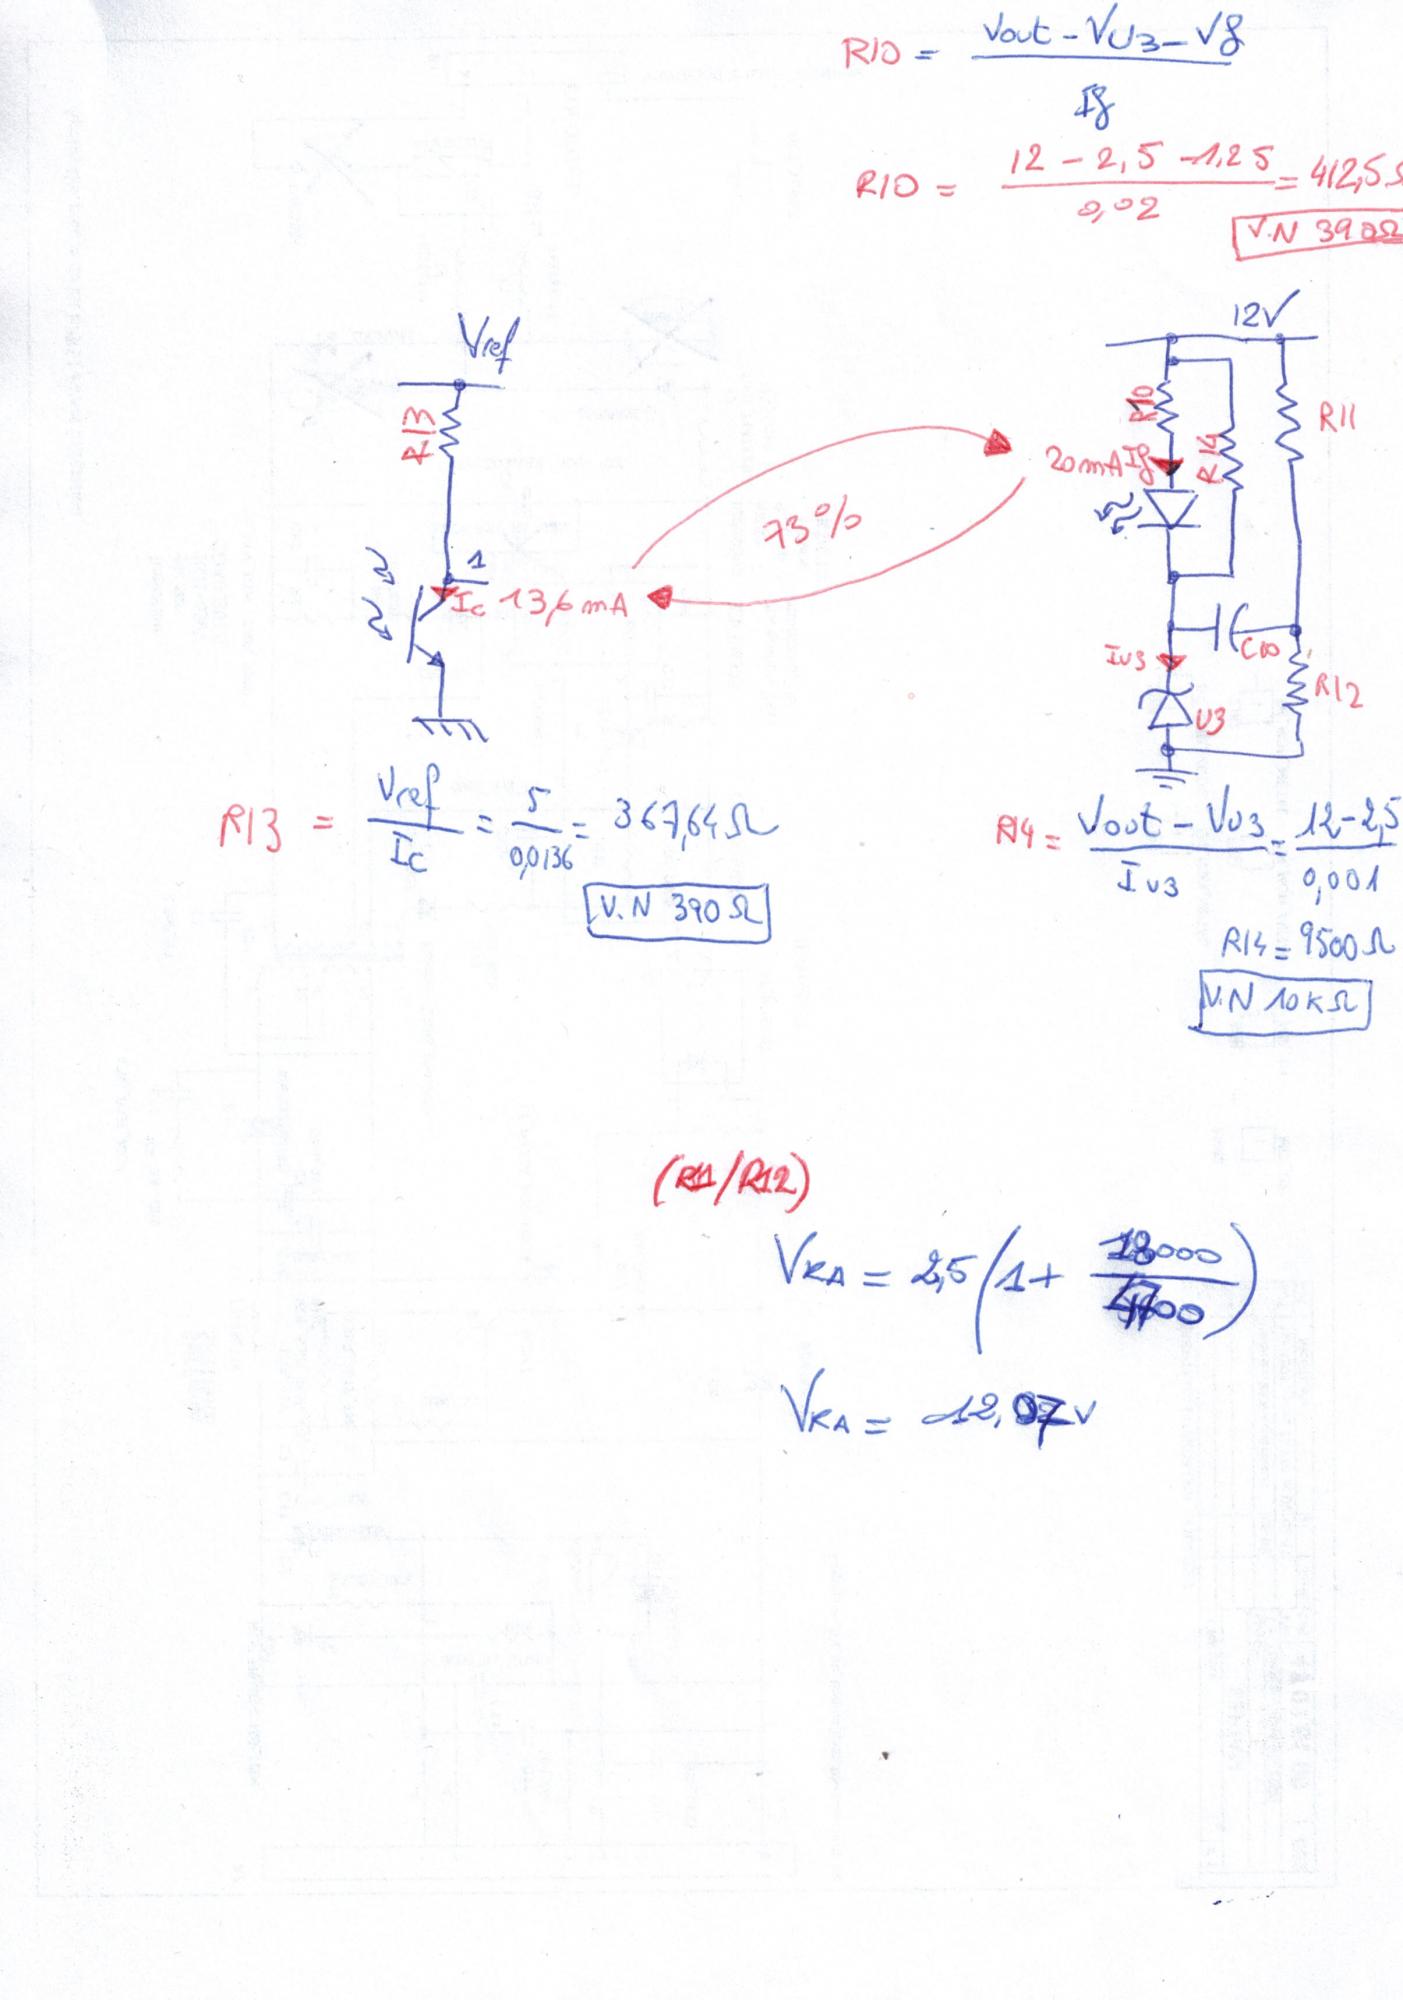 R10 = Vout - VU3 - Vf / If
R10 = 12 - 2,5 - 1,25 / 0,02 = 412,5 Ω
V.N 390Ω
12V
Vref
R13
R10
R14
R11
20mA If
73%
1
Ic 13,6 mA
IU3
C10
R12
U3
R13 = Vref / Ic = 5 / 0,0136 = 367,64 Ω
V.N 390 Ω
R14 = Vout - VU3 / IU3 = 12-2,5 / 0,001
R14 = 9500 Ω
V.N 10K Ω
(R11/R12)
VKA = 2,5 (1 + 18000 / 4700)
VKA = 12,07 V